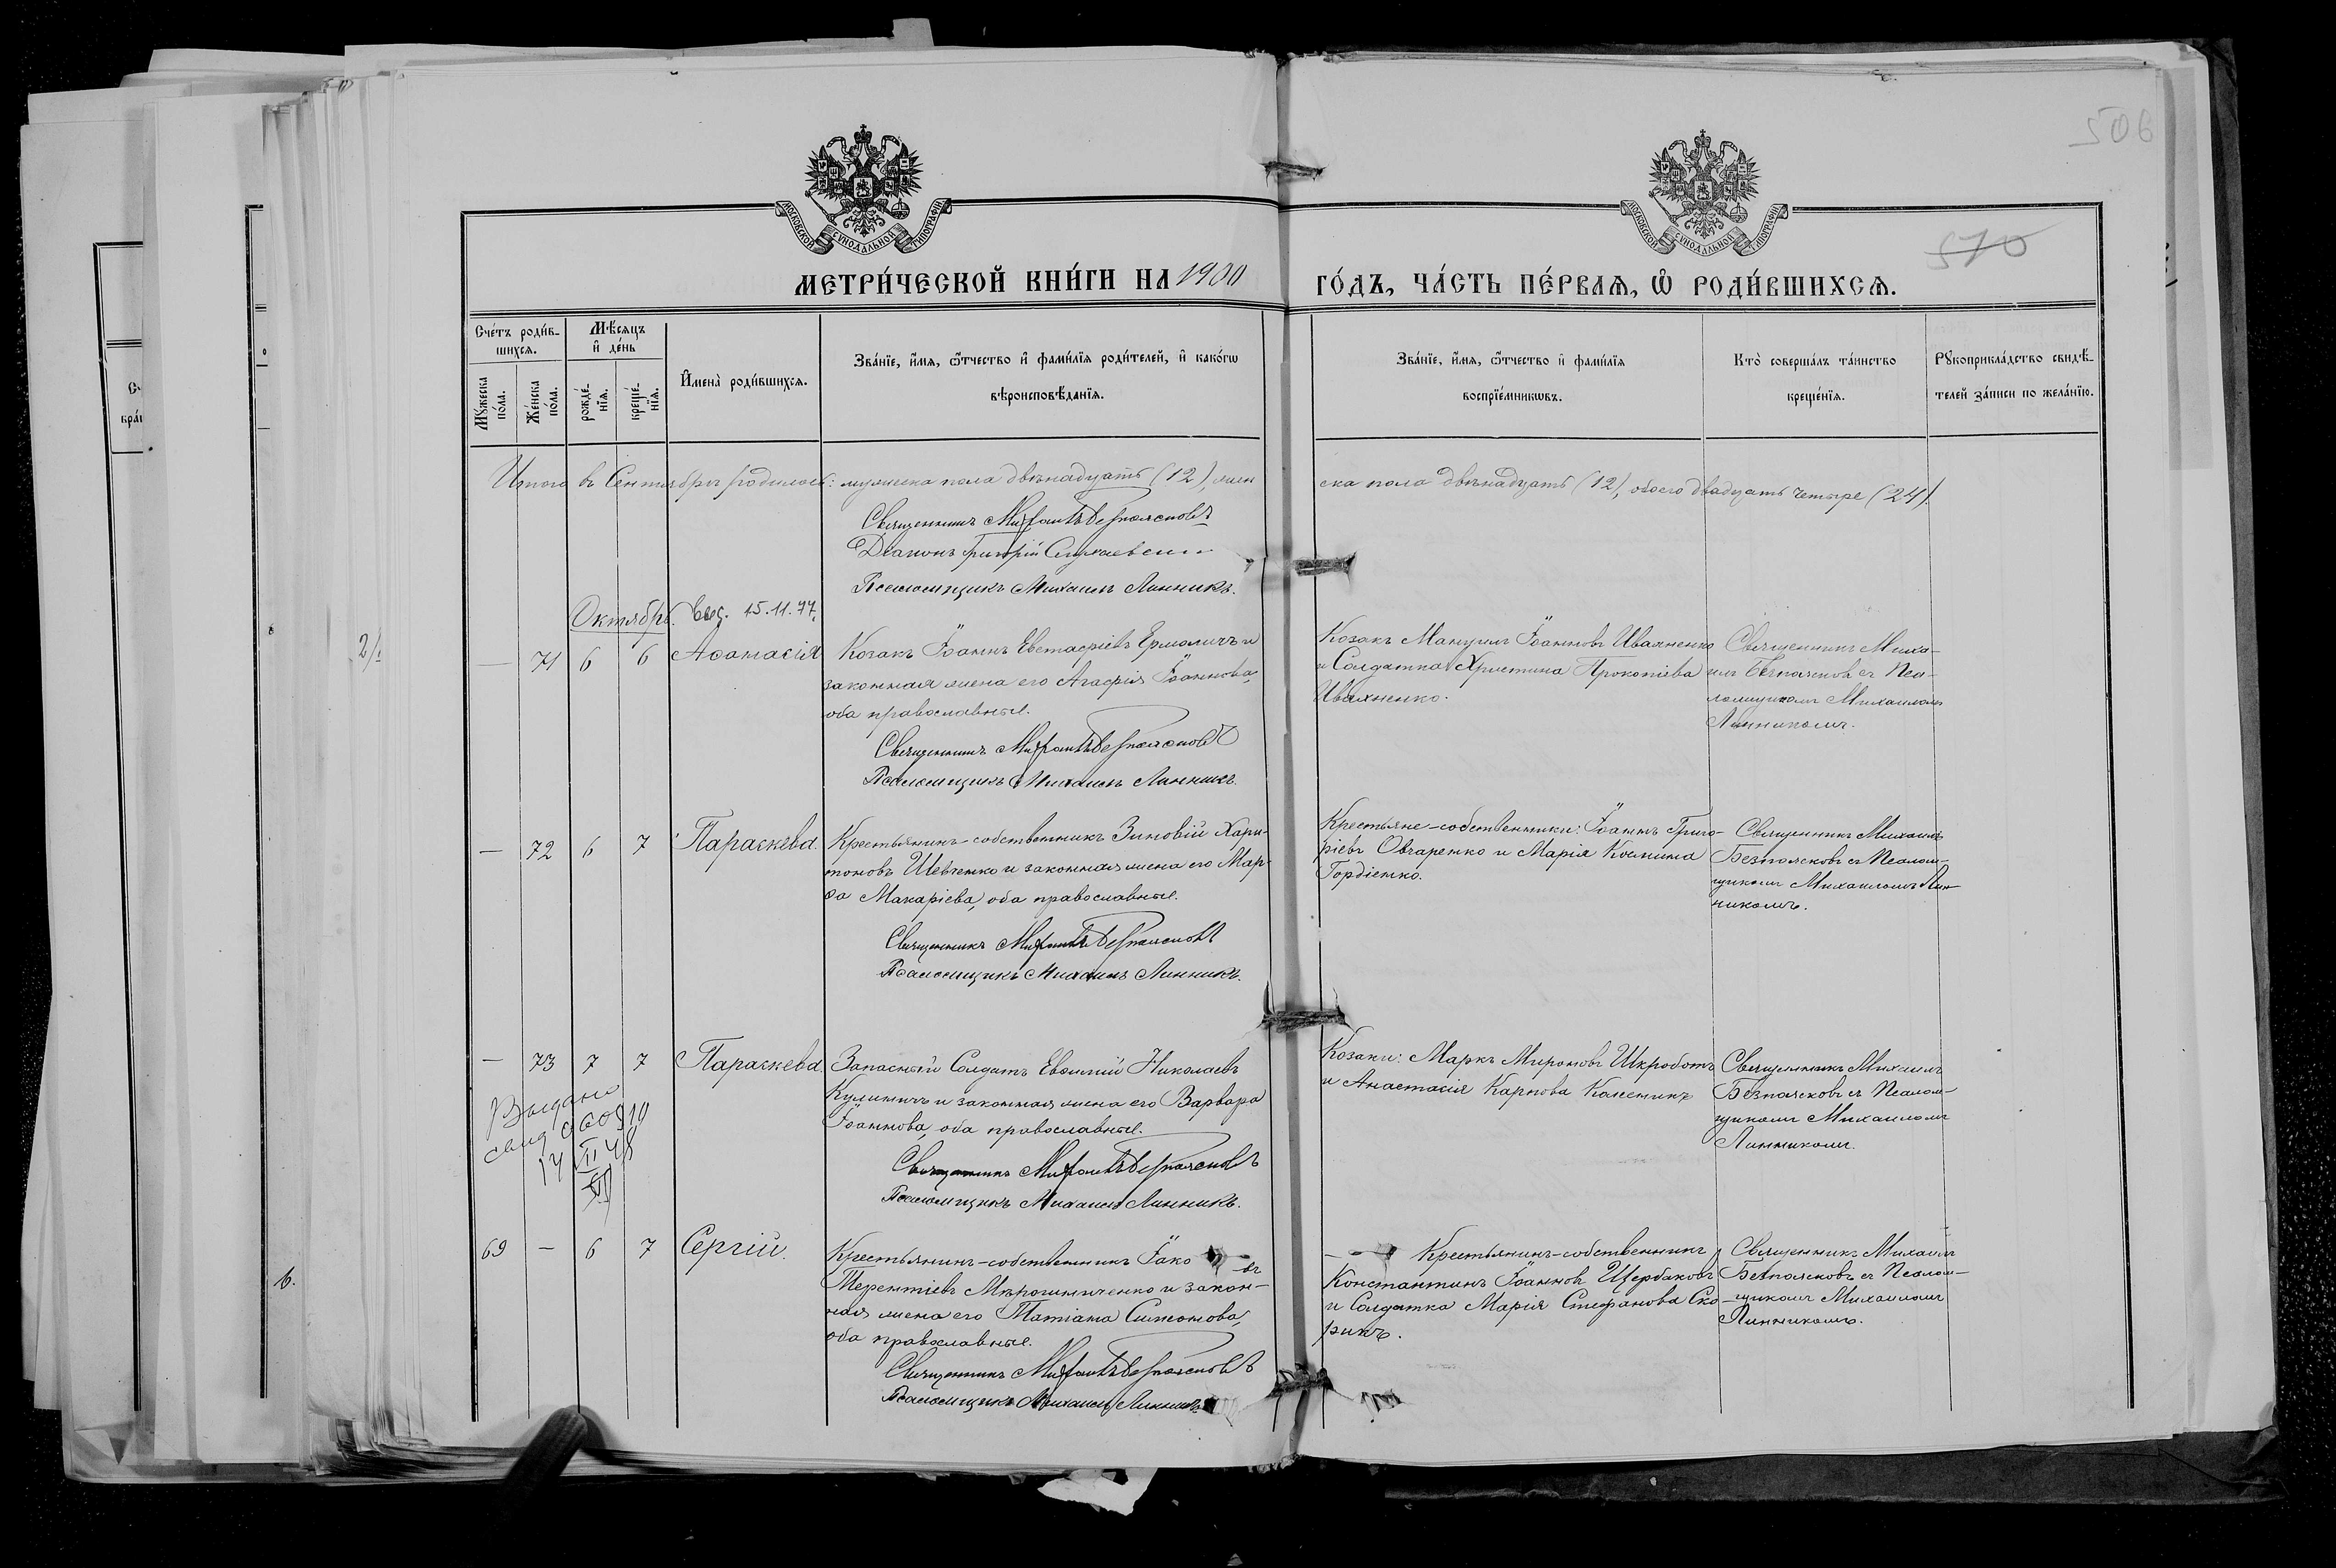 506
570
МОСКОВСКОЙ СѴНОДАЛЬНОЙ ТИПОГРАФІИ
МОСКОВСКОЙ СѴНОДАЛЬНОЙ ТИПОГРАФІИ
МЕТРИ́ЧЕСКОЙ КНИ́ГИ НА 1900 ГО́ДЪ, ЧА́СТЬ ПЕ́РВАѦ, Ѡ҆ РОДИ́ВШИХСѦ.
Сче́тъ роди́в-
шихсѧ.
Мѣ́сѧцъ
и҆ де́нь
Мꙋ́жеска
по́ла.
Же́нска
по́ла.
рожде́-
нїѧ.
креще́-
нїѧ.
И҆мена̀ роди́вшихсѧ.
Зва́нїе, и҆́мѧ, ѻ҆́тчество и҆ фами́лїѧ роди́телей, и҆ како́гѡ
вѣроисповѣ́данїѧ.
Зва́нїе, и҆́мѧ, ѻ҆́тчество и҆ фами́лїѧ
воспрїе́мникѡвъ.
Кто̀ соверша́лъ та́инство
креще́нїѧ.
Рꙋкоприкла́дство свидѣ́-
телей за́писи по жела́нїю.
Итого въ Сентябрѣ родилось: мужеска пола двѣнадцать (12), жен
ска пола двѣнадцать (12), обоего двадцать четыре (24).
Священникъ Михаилъ Безпоясковъ
Діаконъ Григорій
Псаломщикъ Михаилъ Линникъ.
Октябрь. 15.11.77.
— 71 6 6 Аѳанасія
Козакъ Іоаннъ Евстафіевъ Ермоличъ и
законная жена его Агафія Іоаннова,
оба православные.
Священникъ Михаилъ Безпоясковъ
Псаломщикъ Михаилъ Линникъ.
Козакъ Мануилъ Іоанновъ Ивахненко
и Солдатка Христина Прокопіева
Ивахненко.
Священникъ Миха-
илъ Безпоясковъ съ Пса-
ломщикомъ Михаиломъ
Линникомъ.
— 72 6 7 Параскева.
Крестьянинъ-собственникъ Зиновій Хари-
тоновъ Шевченко и законная жена его Мар-
ѳа Макаріева, оба православные.
Священникъ Михаилъ Безпоясковъ
Псаломщикъ Михаилъ Линникъ.
Крестьяне-собственники: Іоаннъ Григо-
ріевъ Овчаренко и Марія Космина
Гордіенко.
Священникъ Михаилъ
Безпоясковъ съ Псалом-
щикомъ Михаиломъ Лин-
никомъ.
— 73 7 7 Параскева.
Выдано
14 II 48
Запасный Солдатъ Евѳимій Николаевъ
Кулиничъ и законная жена его Варвара
Іоаннова, оба православные.
Священникъ Михаилъ Безпоясковъ
Псаломщикъ Михаилъ Линникъ.
Козаки: Маркъ Мироновъ Шкроботъ
и Анастасія Карпова Калсникъ
Священникъ Михаилъ
Безпоясковъ съ Псалом-
щикомъ Михаиломъ
Линникомъ.
69 — 6 7 Сергій.
Крестьянинъ-собственникъ Іако-
въ
Терентіевъ Мирошниченко и закон-
ная жена его Татіана Симеонова,
оба православные.
Священникъ Михаилъ Безпоясковъ
Псаломщикъ Михаилъ Линникъ
Крестьянинъ-собственникъ
Константинъ Іоанновъ Щербаковъ
и Солдатка Марія Стефанова Ско-
рикъ.
Священникъ Михаилъ
Безпоясковъ съ Псалом-
щикомъ Михаиломъ
Линникомъ.